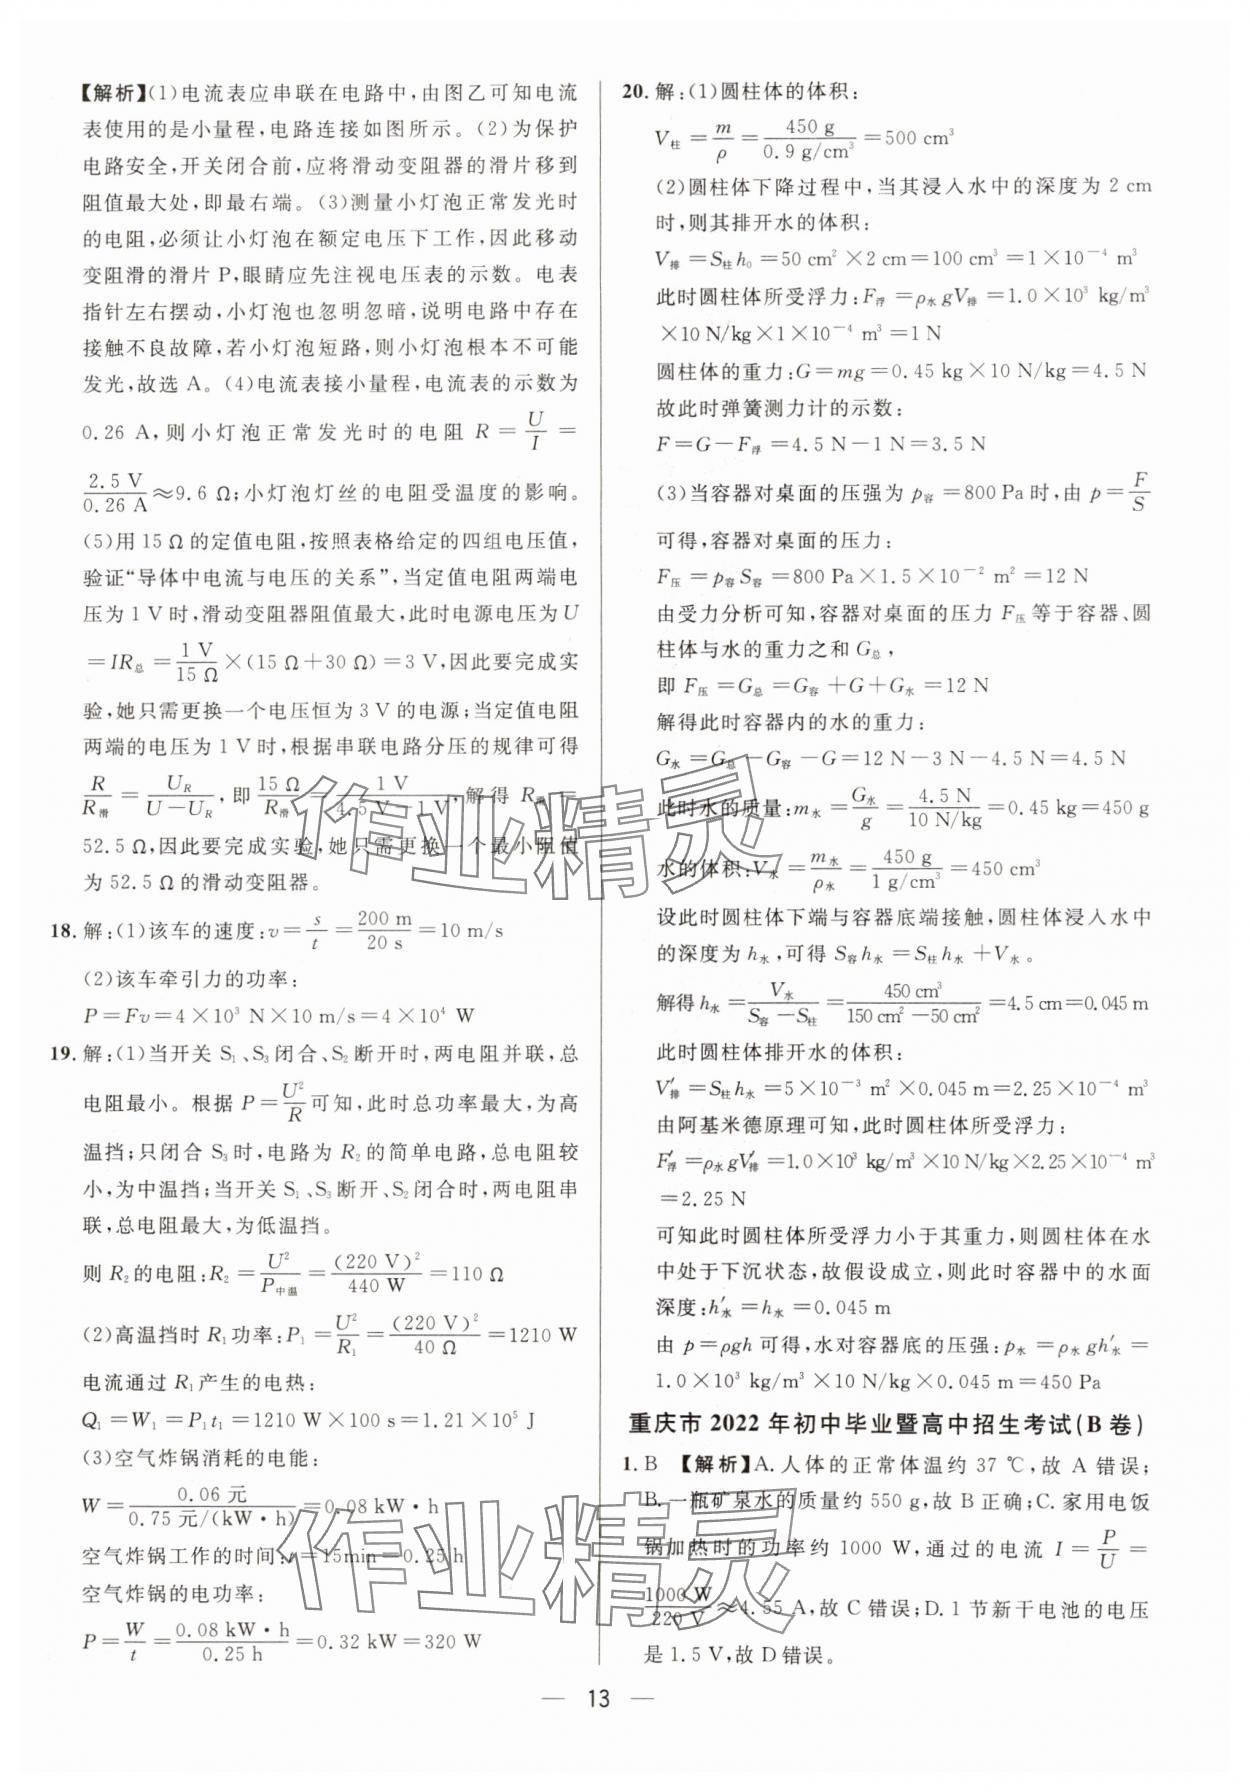 【解析】(1)电流表应串联在电路中,由图乙可知电流
表使用的是小量程,电路连接如图所示。(2)为保护
电路安全,开关闭合前,应将滑动变阻器的滑片移到
阻值最大处,即最右端。(3)测量小灯泡正常发光时
的电阻,必须让小灯泡在额定电压下工作,因此移动
变阻滑的滑片 P,眼睛应先注视电压表的示数。电表
指针左右摆动,小灯泡也忽明忽暗,说明电路中存在
接触不良故障,若小灯泡短路,则小灯泡根本不可能
发光,故选 A。(4)电流表接小量程,电流表的示数为
0.26 A,则小灯泡正常发光时的电阻 R=U/I=
2.5 V/0.26 A≈9.6 Ω;小灯泡灯丝的电阻受温度的影响。
(5)用 15 Ω的定值电阻,按照表格给定的四组电压值,
验证“导体中电流与电压的关系”,当定值电阻两端电
压为 1 V 时,滑动变阻器阻值最大,此时电源电压为 U
=IR总=1 V/15 Ω×(15 Ω+30 Ω)=3 V,因此要完成实
验,她只需更换一个电压恒为 3 V 的电源;当定值电阻
两端的电压为 1 V 时,根据串联电路分压的规律可得
R/R滑=U_R/(U-U_R),即 15 Ω/R滑=1 V/(4.5 V-1 V),解得 R滑=
52.5 Ω,因此要完成实验,她只需更换一个最小阻值
为 52.5 Ω的滑动变阻器。
18. 解:(1)该车的速度:v=s/t=200 m/20 s=10 m/s
(2)该车牵引力的功率:
P=Fv=4×10³ N×10 m/s=4×10⁴ W
19. 解:(1)当开关 S₁、S₃闭合、S₂断开时,两电阻并联,总
电阻最小。根据 P=U²/R可知,此时总功率最大,为高
温挡;只闭合 S₃时,电路为 R₂的简单电路,总电阻较
小,为中温挡;当开关 S₁、S₃断开、S₂闭合时,两电阻串
联,总电阻最大,为低温挡。
则 R₂的电阻:R₂=U²/P中温=(220 V)²/440 W=110 Ω
(2)高温挡时 R₁功率:P₁=U²/R₁=(220 V)²/40 Ω=1210 W
电流通过 R₁产生的电热:
Q₁=W₁=P₁t₁=1210 W×100 s=1.21×10⁵ J
(3)空气炸锅消耗的电能:
W=0.06 元/0.75 元/(kW·h)=0.08 kW·h
空气炸锅工作的时间:t=15min=0.25 h
空气炸锅的电功率:
P=W/t=0.08 kW·h/0.25 h=0.32 kW=320 W
20. 解:(1)圆柱体的体积:
V柱=m/ρ=450 g/0.9 g/cm³=500 cm³
(2)圆柱体下降过程中,当其浸入水中的深度为 2 cm
时,则其排开水的体积:
V排=S柱h₀=50 cm²×2 cm=100 cm³=1×10⁻⁴ m³
此时圆柱体所受浮力:F浮=ρ水gV排=1.0×10³ kg/m³
×10 N/kg×1×10⁻⁴ m³=1 N
圆柱体的重力:G=mg=0.45 kg×10 N/kg=4.5 N
故此时弹簧测力计的示数:
F=G-F浮=4.5 N-1 N=3.5 N
(3)当容器对桌面的压强为 p容=800 Pa 时,由 p=F/S
可得,容器对桌面的压力:
F压=p容S容=800 Pa×1.5×10⁻² m²=12 N
由受力分析可知,容器对桌面的压力 F压等于容器、圆
柱体与水的重力之和 G总,
即 F压=G总=G容+G+G水=12 N
解得此时容器内的水的重力:
G水=G总-G容-G=12 N-3 N-4.5 N=4.5 N
此时水的质量:m水=G水/g=4.5 N/10 N/kg=0.45 kg=450 g
水的体积:V水=m水/ρ水=450 g/1 g/cm³=450 cm³
设此时圆柱体下端与容器底端接触,圆柱体浸入水中
的深度为 h水,可得 S容h水=S柱h水+V水。
解得 h水=V水/(S容-S柱)=450 cm³/(150 cm²-50 cm²)=4.5 cm=0.045 m
此时圆柱体排开水的体积:
V′排=S柱h水=5×10⁻³ m²×0.045 m=2.25×10⁻⁴ m³
由阿基米德原理可知,此时圆柱体所受浮力:
F′浮=ρ水gV′排=1.0×10³ kg/m³×10 N/kg×2.25×10⁻⁴ m³
=2.25 N
可知此时圆柱体所受浮力小于其重力,则圆柱体在水
中处于下沉状态,故假设成立,则此时容器中的水面
深度:h′水=h水=0.045 m
由 p=ρgh 可得,水对容器底的压强:p水=ρ水gh′水=
1.0×10³ kg/m³×10 N/kg×0.045 m=450 Pa
重庆市 2022 年初中毕业暨高中招生考试(B 卷)
1. B 【解析】A. 人体的正常体温约 37 ℃,故 A 错误;
B. 一瓶矿泉水的质量约 550 g,故 B 正确;C. 家用电饭
锅加热时的功率约 1000 W,通过的电流 I=P/U=
1000 W/220 V≈4.55 A,故 C 错误;D. 1 节新干电池的电压
是 1.5 V,故 D 错误。
作业精灵
作业精灵
— 13 —